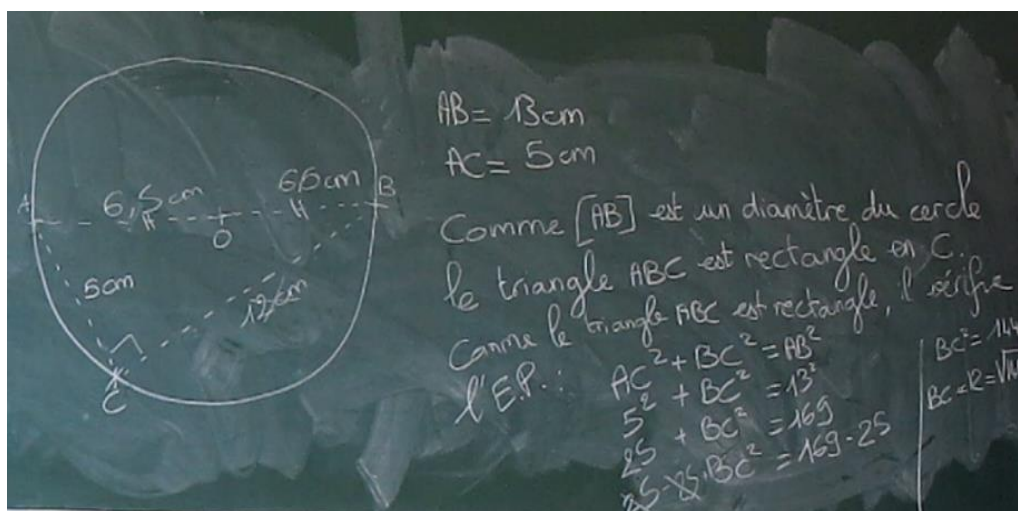 A
6,5cm
O
6,5cm
B
5cm
12cm
C
AB = 13cm
AC = 5cm
Comme [AB] est un diamètre du cercle
le triangle ABC est rectangle en C.
Comme le triangle ABC est rectangle, il vérifie
l'E.P.: AC² + BC² = AB²
5² + BC² = 13²
25 + BC² = 169
25-25+BC² = 169-25
BC² = 144
BC = 12 =